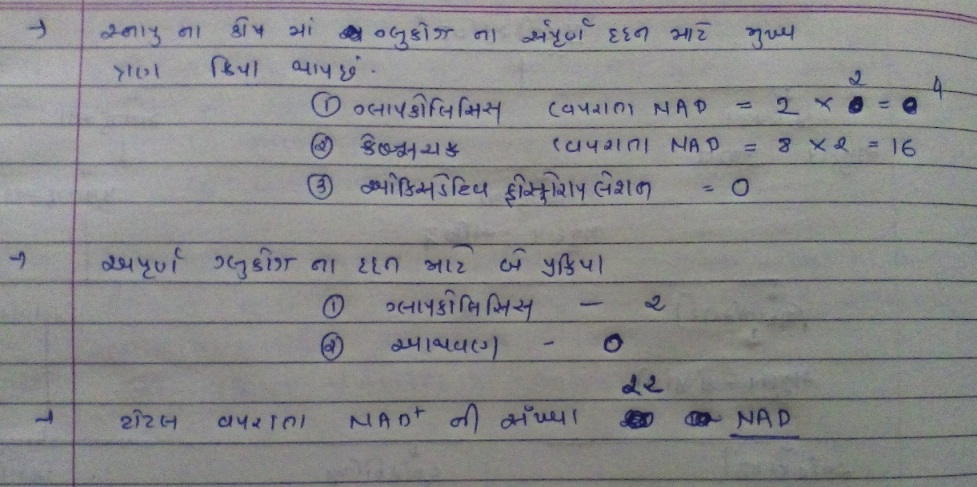 → સ્નાયુ ના કોષ માં ગ્લુકોઝ ના સંપૂર્ણ દહન માટે મુખ્ય
ત્રણ ક્રિયા થાય છે.
① ગ્લાયકોલિસિસ વપરાતા NAD = 2 × 2 = 4
② ક્રેબ્સચક્ર વપરાતા NAD = 8 × 2 = 16
③ ઓક્સિડેટિવ ફોસ્ફોરાયલેશન = 0
→ અપૂર્ણ ગ્લુકોઝ ના દહન માટે બે પ્રક્રિયા
① ગ્લાયકોલિસિસ — ૨
② આથવણ - 0
→ ટોટલ વપરાતા NAD⁺ ની સંખ્યા ૨૨ NAD